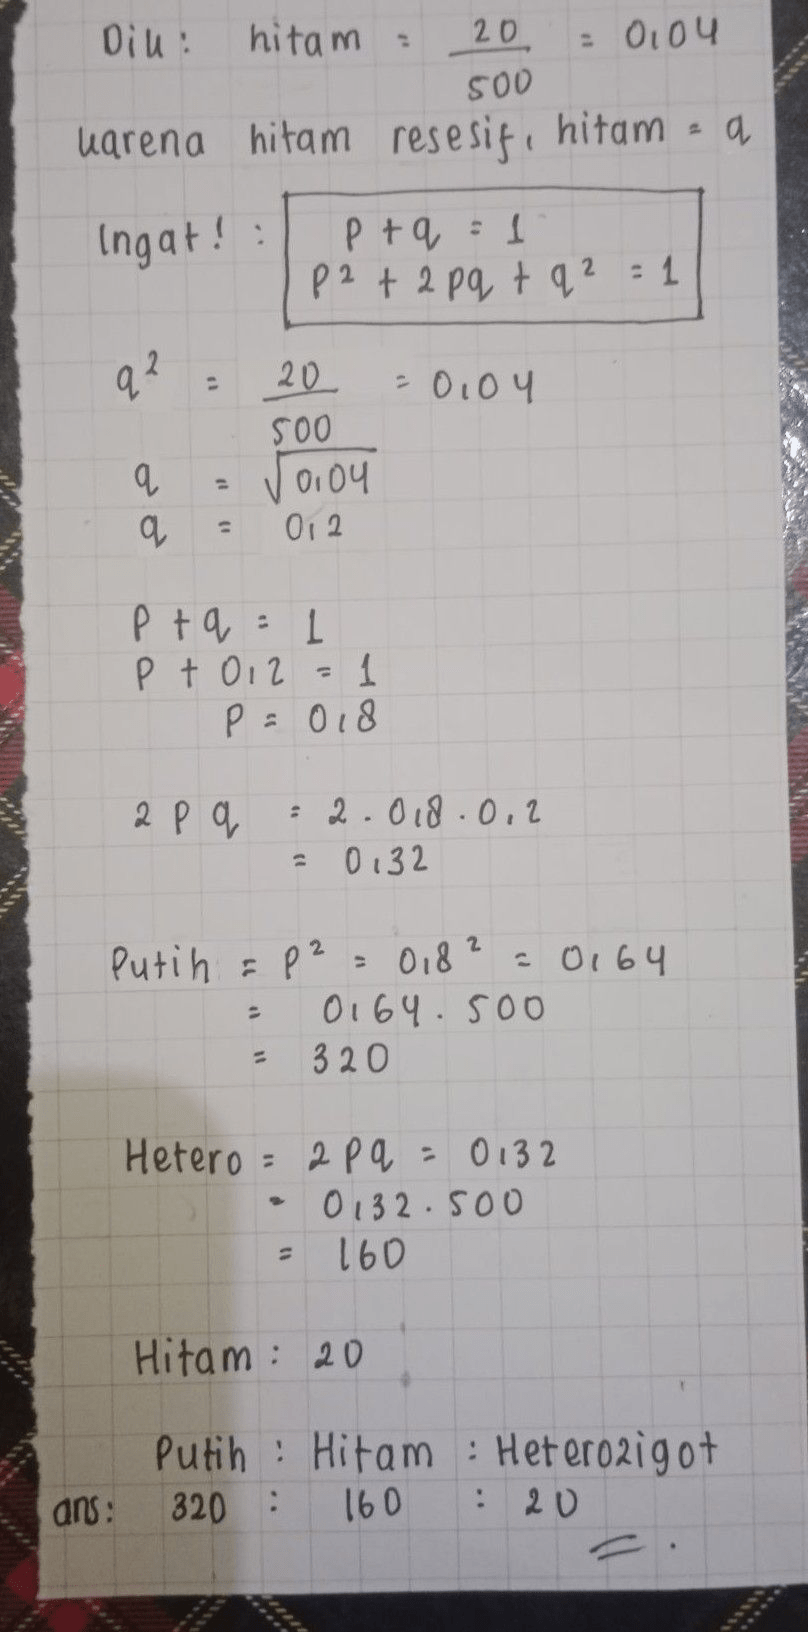 Dik : hitam = 20/500 = 0,04
karena hitam resesif, hitam = q
Ingat! : p + q = 1
p² + 2pq + q² = 1
q² = 20/500 = 0,04
q = √0,04
q = 0,2
p + q = 1
p + 0,2 = 1
p = 0,8
2 p q = 2 . 0,8 . 0,2
= 0,32
Putih = p² = 0,8² = 0,64
= 0,64 . 500
= 320
Hetero = 2pq = 0,32
= 0,32 . 500
= 160
Hitam : 20
Putih : Hitam : Heterozigot
ans: 320 : 160 : 20